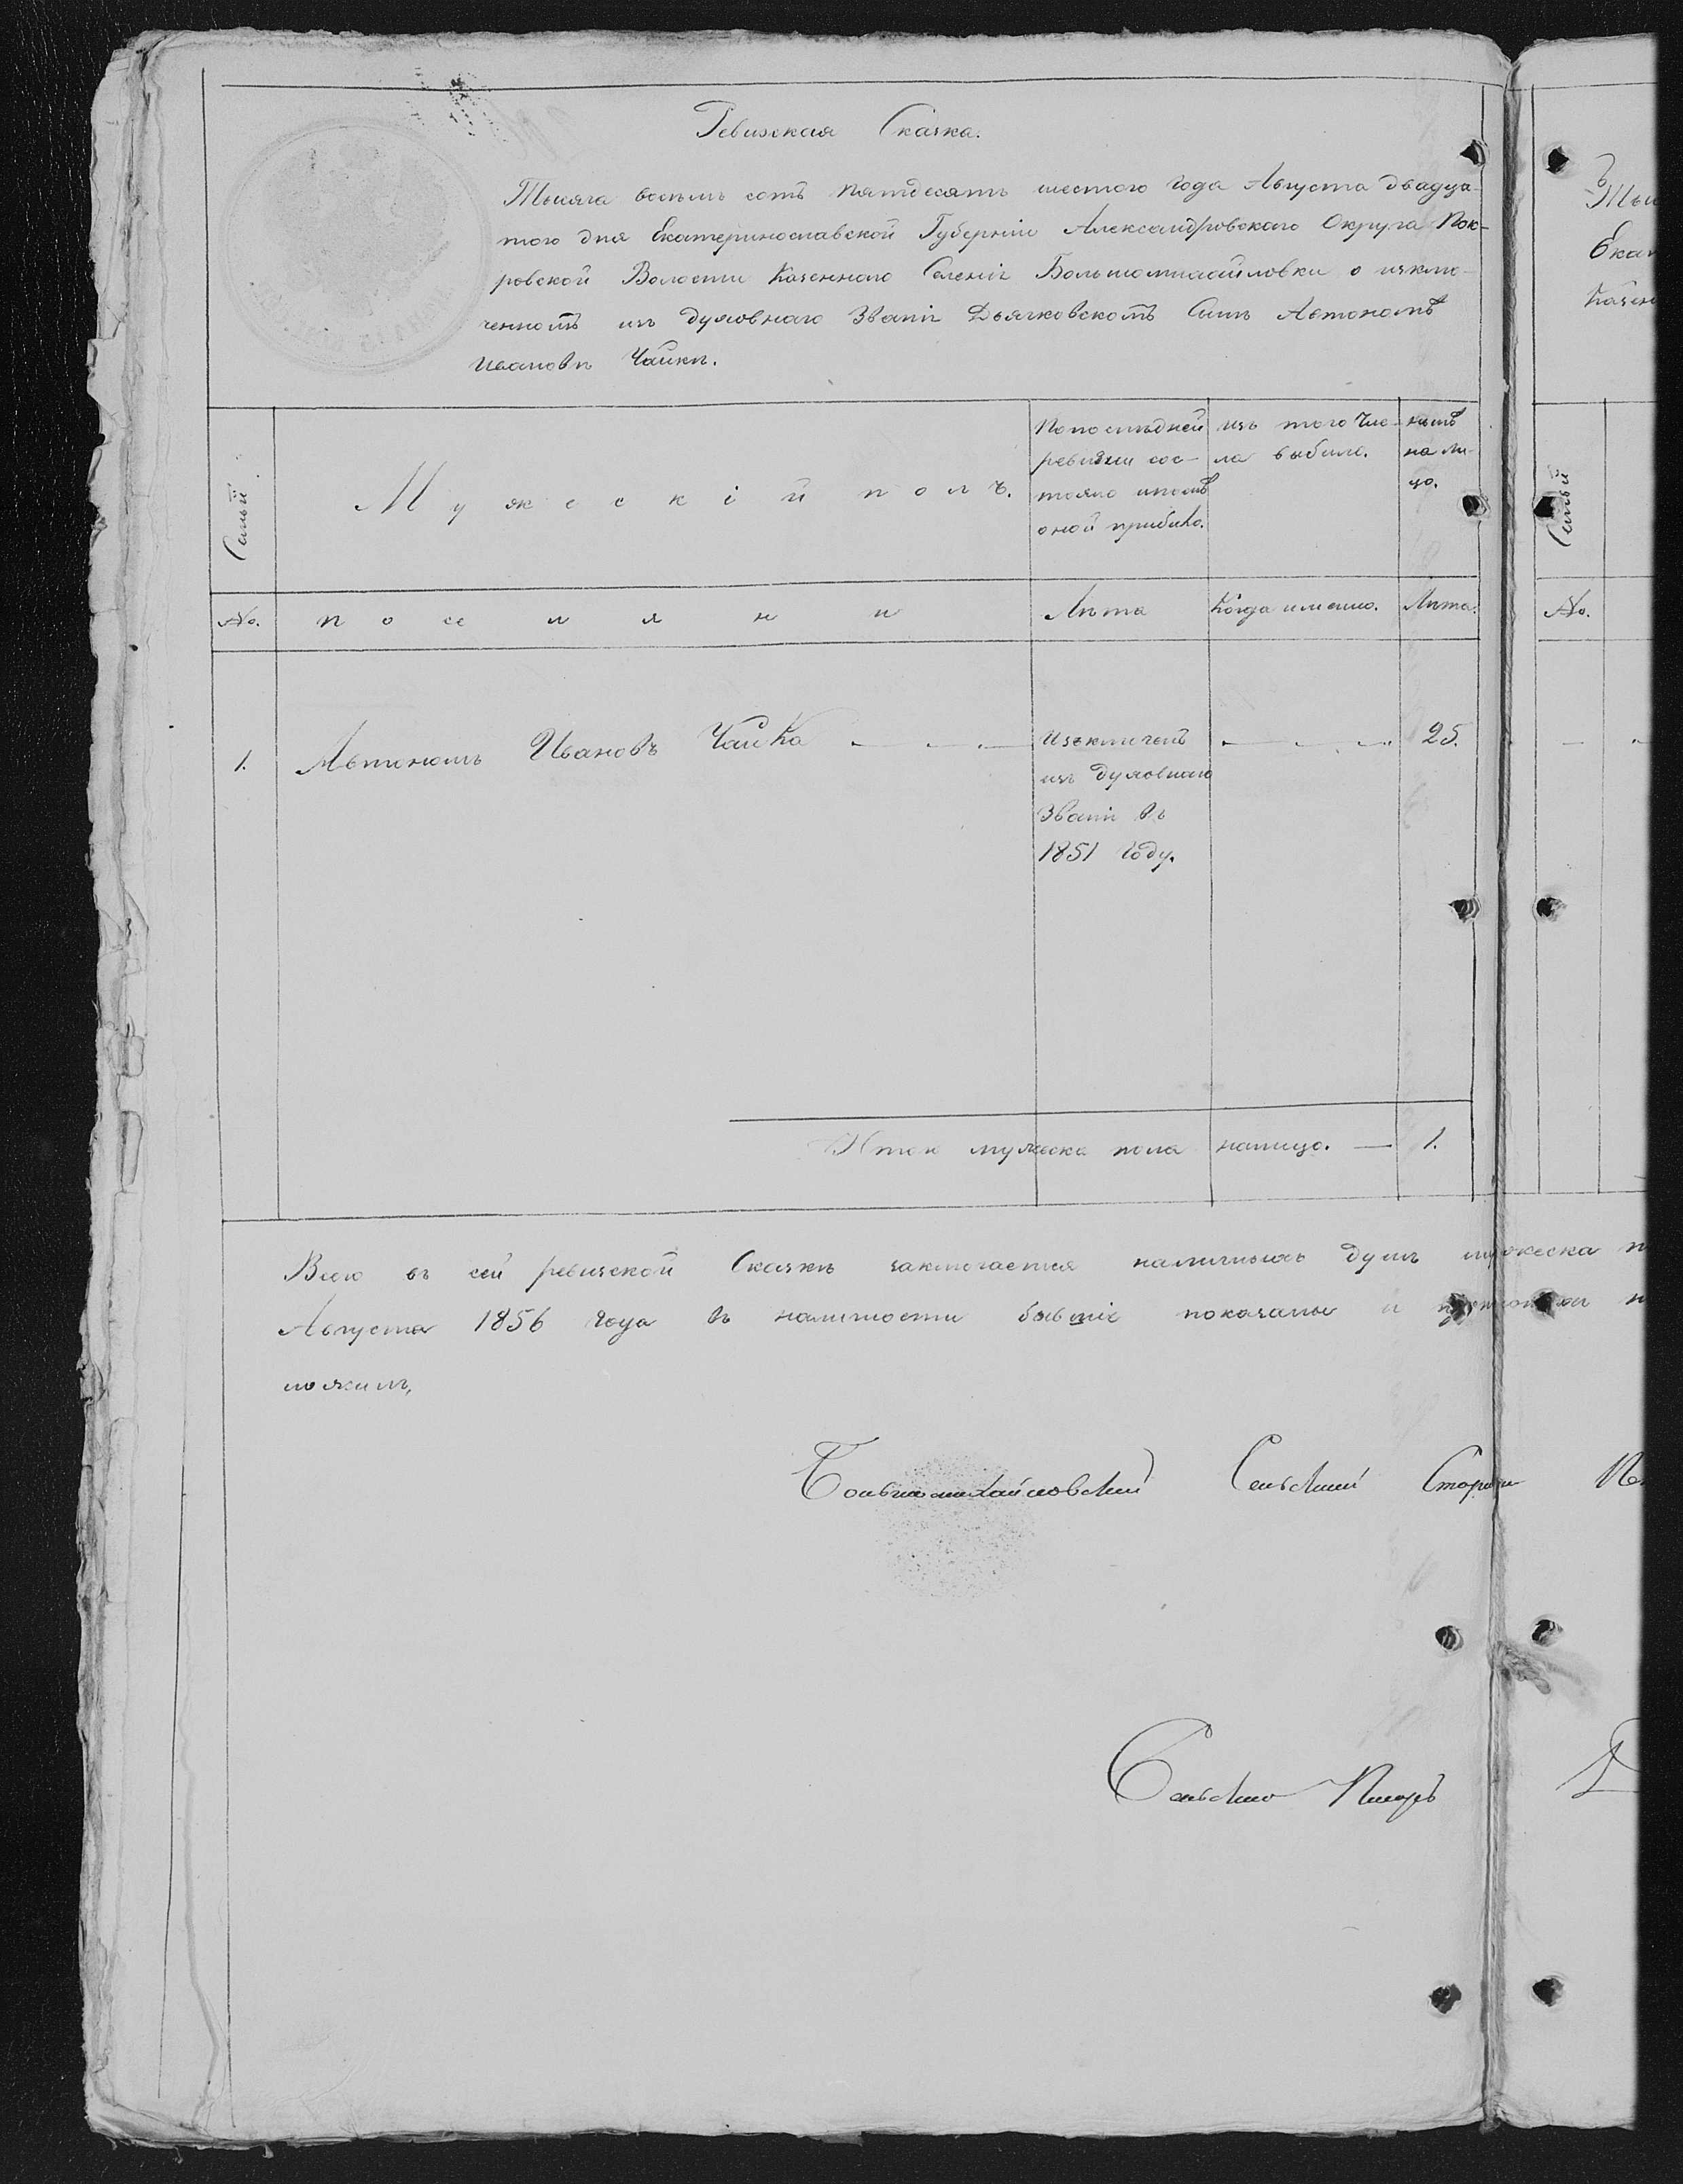 Ревизская Сказка.
Тысяча восемь сотъ пятдесятъ шестого года Августа двадца-
того дня Екатеринославской Губерніи Александровского Округа Пок-
ровской Волости Казенного Селеніе Большомихайловки о исклю-
ченномъ изъ духовнаго Званія Дьячковскомъ Сынѣ Автономѣ
Ивановѣ Чайки.
Семьи
Мужескій полъ.
По последней ревизіи сос-
тояло и после
оной прибыло.
изъ того чис-
ла выбыло.
ныне
на ли-
цо.
Семьи
No.
поселяни
Лѣта
Когда именно.
Лѣта.
No.
1.
Автономъ Ивановъ Чайка
Изключенъ
изъ духовнаго
Званія въ
1851 году.
25.
Итого мужеска пола налицо. — 1.
Всего въ сей ревизской Сказкѣ заключается наличныхъ душъ мужеска
Августа 1856 года въ наличности бывшіе показаны и
ложимъ,
Большомихайловский Сельский Старши
Сельский Писарь